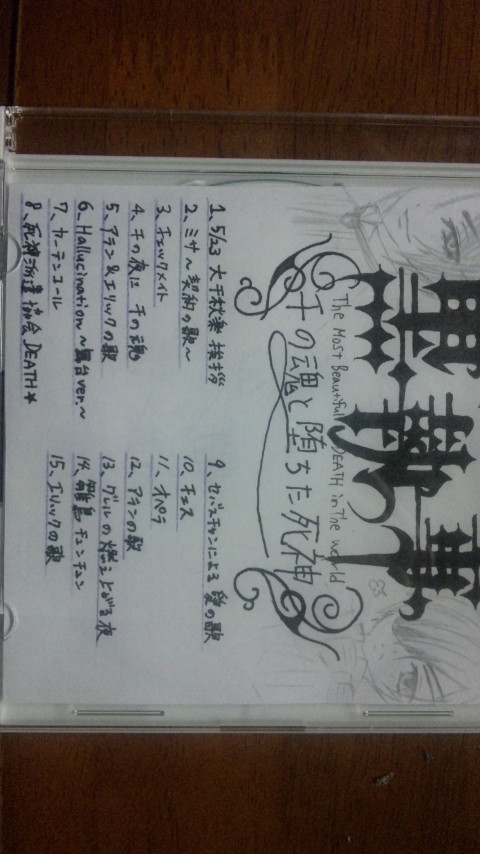 黒執事
The Most Beautiful DEATH in The World
千の魂と堕ちた死神
1、5/23 大千秋楽 挨拶
2、ミサ〜契約の歌〜
3、チェックメイト
4、千の夜に 千の魂
5、アラン&エリックの歌
6、Hallucination〜舞台ver.〜
7、カーテンコール
8、死神派遣協会DEATH★
9、セバスチャンによる 愛の歌
10、チェス
11、オペラ
12、アランの歌
13、グレルの燃えどがる夜
14、雛鳥 チュンチュン
15、エリックの歌